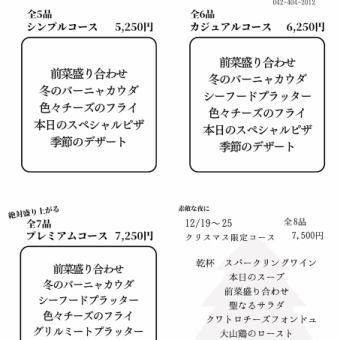 042-404-2012
全5品
シンプルコース 5,250円
前菜盛り合わせ
冬のバーニャカウダ
色々チーズのフライ
本日のスペシャルピザ
季節のデザート
全6品
カジュアルコース 6,250円
前菜盛り合わせ
冬のバーニャカウダ
シーフードプラッター
色々チーズのフライ
本日のスペシャルピザ
季節のデザート
絶対盛り上がる
全7品
プレミアムコース 7,250円
前菜盛り合わせ
冬のバーニャカウダ
シーフードプラッター
色々チーズのフライ
グリルミートプラッター
素敵な夜に
12/19〜25 全8品
クリスマス限定コース 7,500円
乾杯 スパークリングワイン
本日のスープ
前菜盛り合わせ
聖なるサラダ
クワトロチーズフォンデュ
大山鶏のロースト